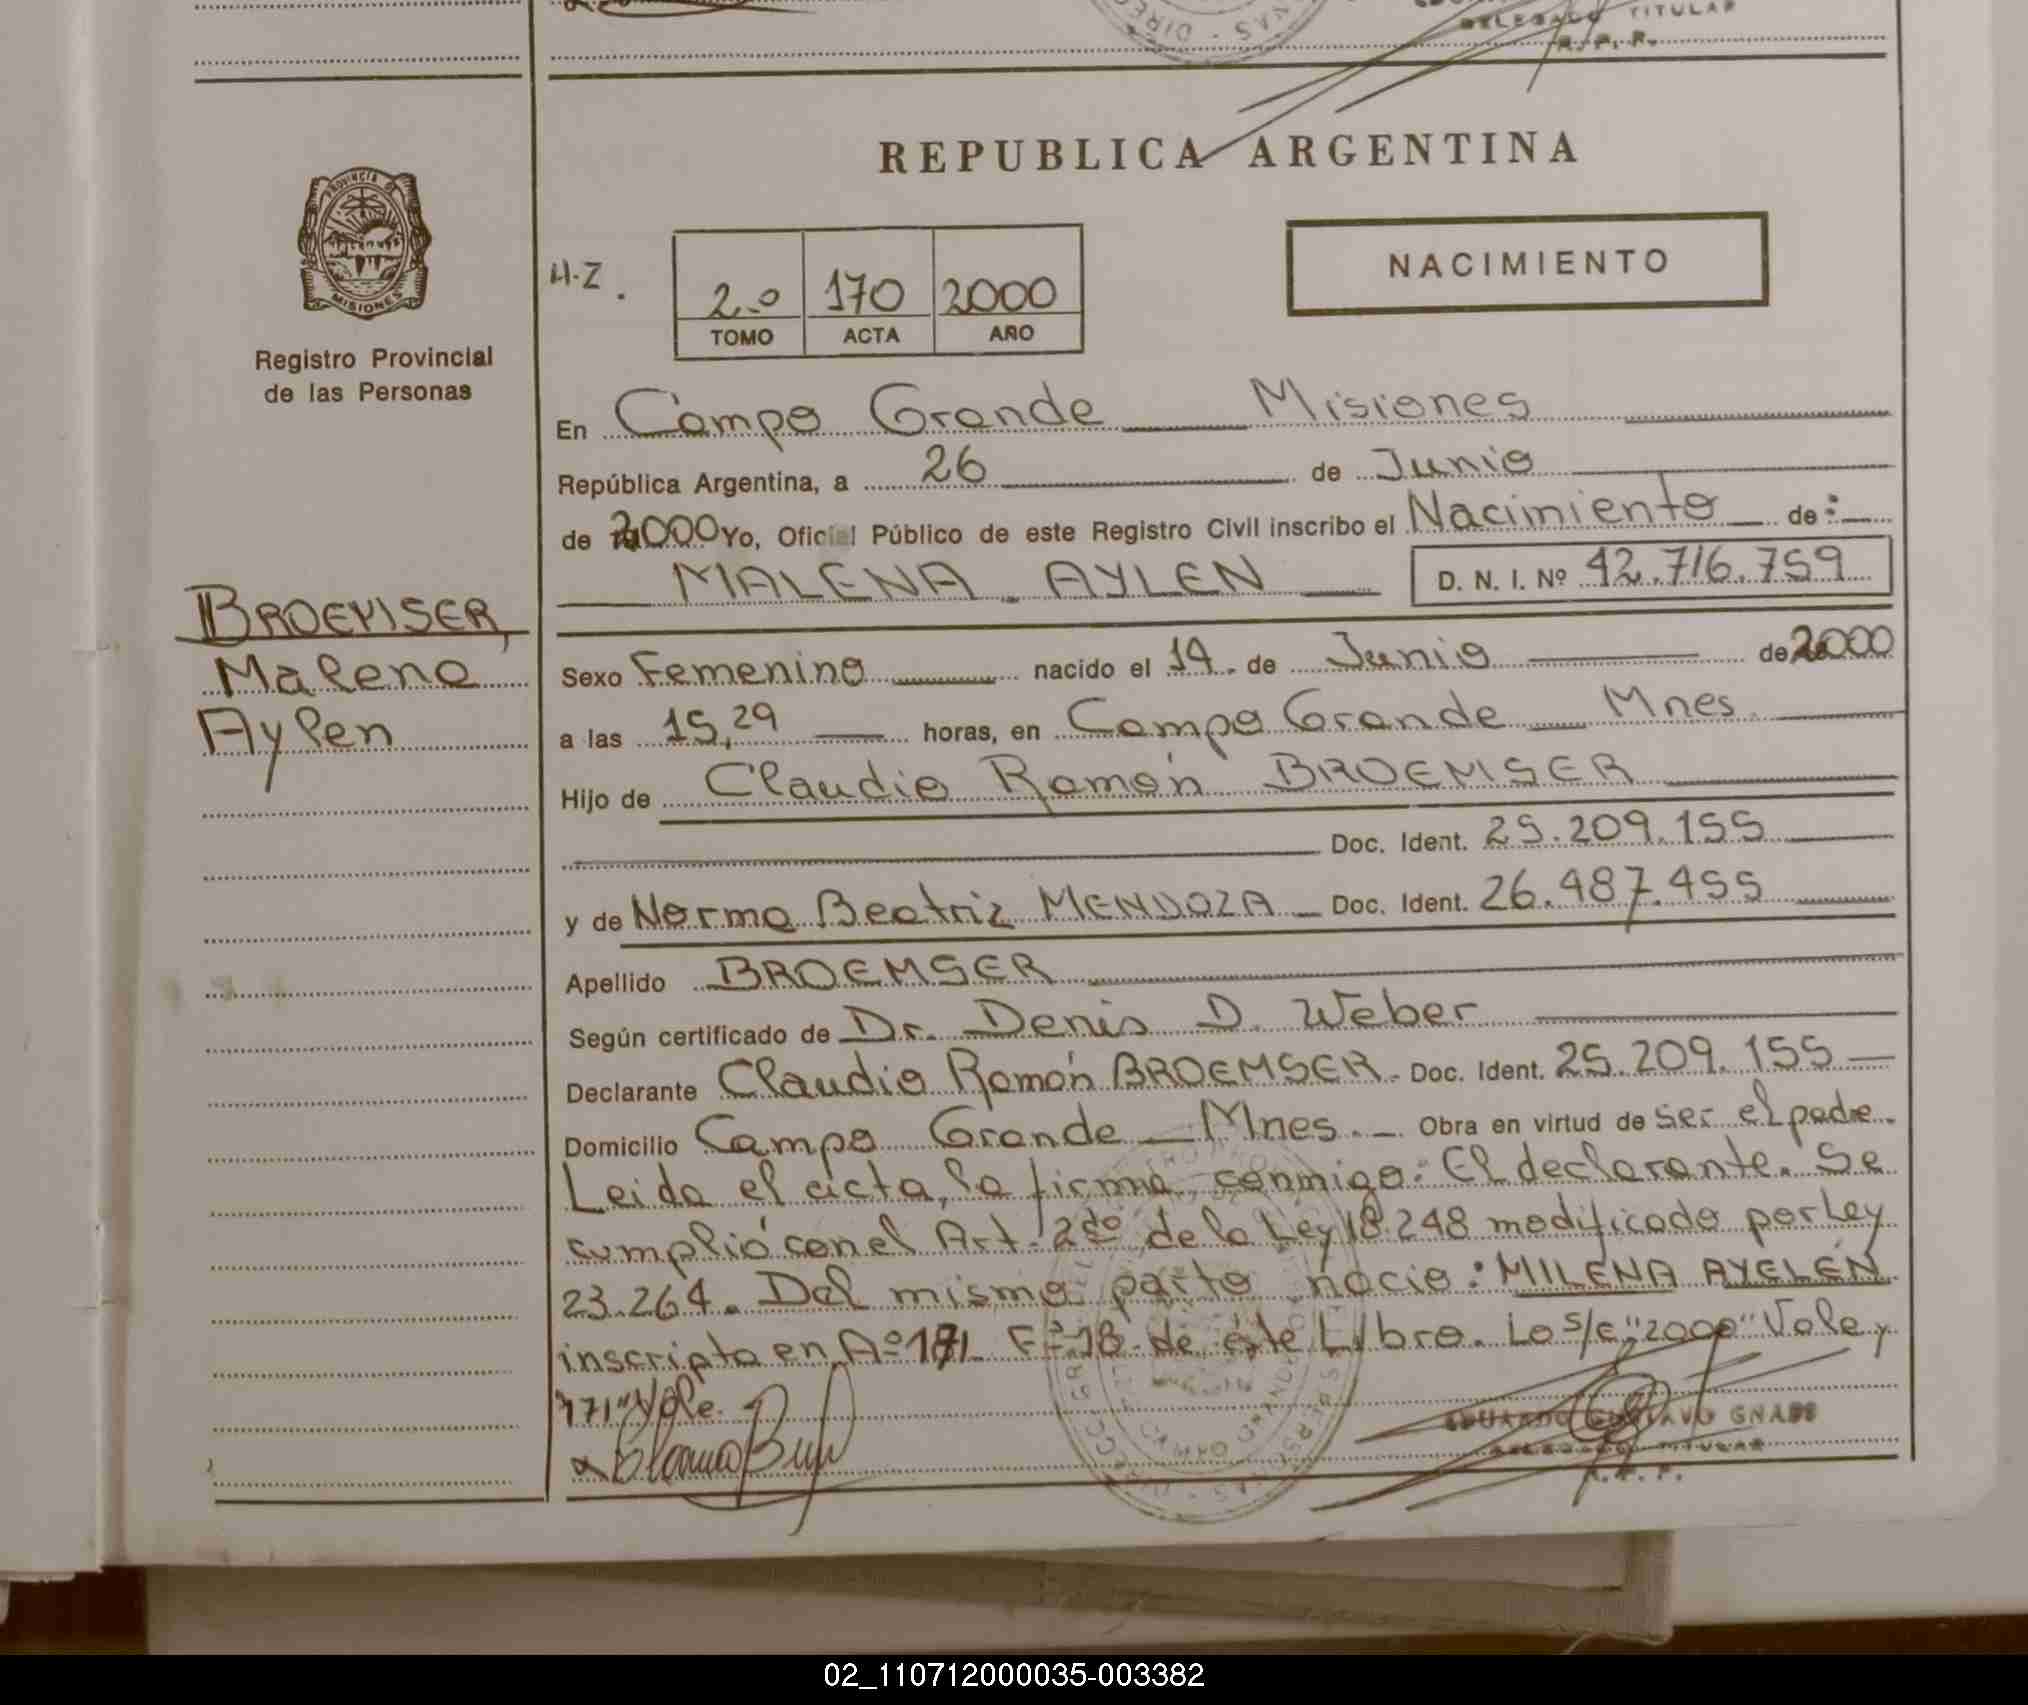 DELEGADO TITULAR
R. P. P.
REPUBLICA ARGENTINA
PROVINCIA D
MISIONES
Registro Provincial
de las Personas
H-Z.
2.º 170 2000
TOMO ACTA AÑO
NACIMIENTO
En Campo Grande Misiones
República Argentina, a 26 de Junio
de 2000 Yo, Oficial Público de este Registro Civil inscribo el Nacimiento de:
MALENA AYLEN D. N. I. Nº 42.716.759
BROEMSER,
Malena
Aylen
Sexo Femenino nacido el 14 de Junio de 2000
a las 15,29 horas, en Campo Grande Mnes
Hijo de Claudio Ramón BROEMSER
Doc. Ident. 25.209.155
y de Norma Beatriz MENDOZA Doc. Ident. 26.487.455
Apellido BROEMSER
Según certificado de Dr. Denis D. Weber
Declarante Claudio Ramón BROEMSER Doc. Ident. 25.209.155
Domicilio Campo Grande - Mnes. Obra en virtud de ser el padre.
Leida el acta, la firma conmigo: El declarante. Se
cumplió con el Art. 2do de la Ley 18.248 modificado por Ley
23.264. Del mismo parto nacio: MILENA AYELÉN
inscripta en Aº 171 Fº 18 de éste Libro. Lo s/e "2000" Vale y
"171" Vale.
EDUARDO GUSTAVO GNASS
DELEGADO TITULAR
R. P. P.
02_110712000035-003382